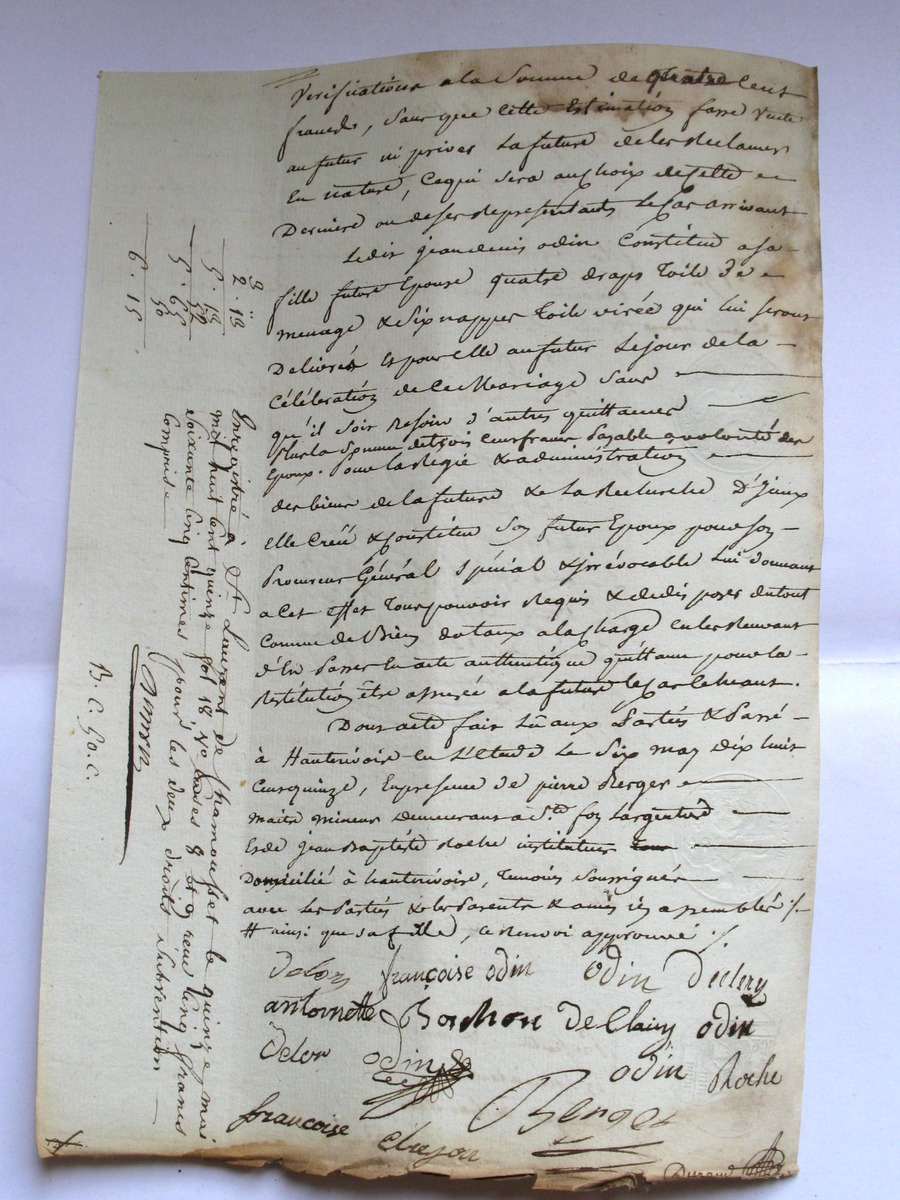 Verifications a la Somme de quatre Cent
francs, Sans que Cette Estimation fasse Vente
au futur ni priver La future de les Reclamer
En nature, Ce qui Sera au Choix de Cette
Derniere ou de Ses Representants Le Cas arrivant
Ledit jean denis odin Constitue a Sa
fille future Epouse quatre draps Toile de
menage & Six nappes Toile virée qui lui Seront
Delivrés Et pour elle au futur Le jour de la
Célébration de Ce Mariage Sans
qu'il Soit Besoin d'autres quittances
Plus la Somme de trois Cent francs payable a volonté des
Epoux. Pour la Regie & administration
des biens de la future & La Recherche D'iceux
Elle Créé & Constitue Son futur Epoux pour Son
Procureur Général Spécial & irrévocable Lui donnant
a Cet Effet Tous pouvoir Requis & de disposer du tout
Comme de Biens dotaux a la Charge en les Recevant
d'En Passer un acte authentique quittance pour la
Restitution être assurée a la future le Cas Echeant.
Dont acte fait Lu aux Parties & Passé
à Hauterivoire en L'Etude Le Six may Dix huit
Cent quinze, En presence de pierre Berger
maitre mineur Demeurant a Ste foy Largentière
Et de jean Baptiste Roche instituteur
Domicilié à hauterivoire, Temoins Soussignés
avec Les Parties & les Parents & amis ici assemblés ./.
# ainsi que sa fille, ce renvoi approuvé ./.
Delon françoise odin odin Declery
antoinette Bonhon De Clairy odin
Delon odin odin Roche
françoise Berger
Durand
2 . 18
5 . 65
50
6 . 15
Enregistré à St Laurent de Chamousset le quinze mai
mil huit cent quinze fol 18 Vo cases 8 et 9 reçu cinq francs
soixante cinq centimes pour les deux droits subvention
Comprise
B. C. 50. C.